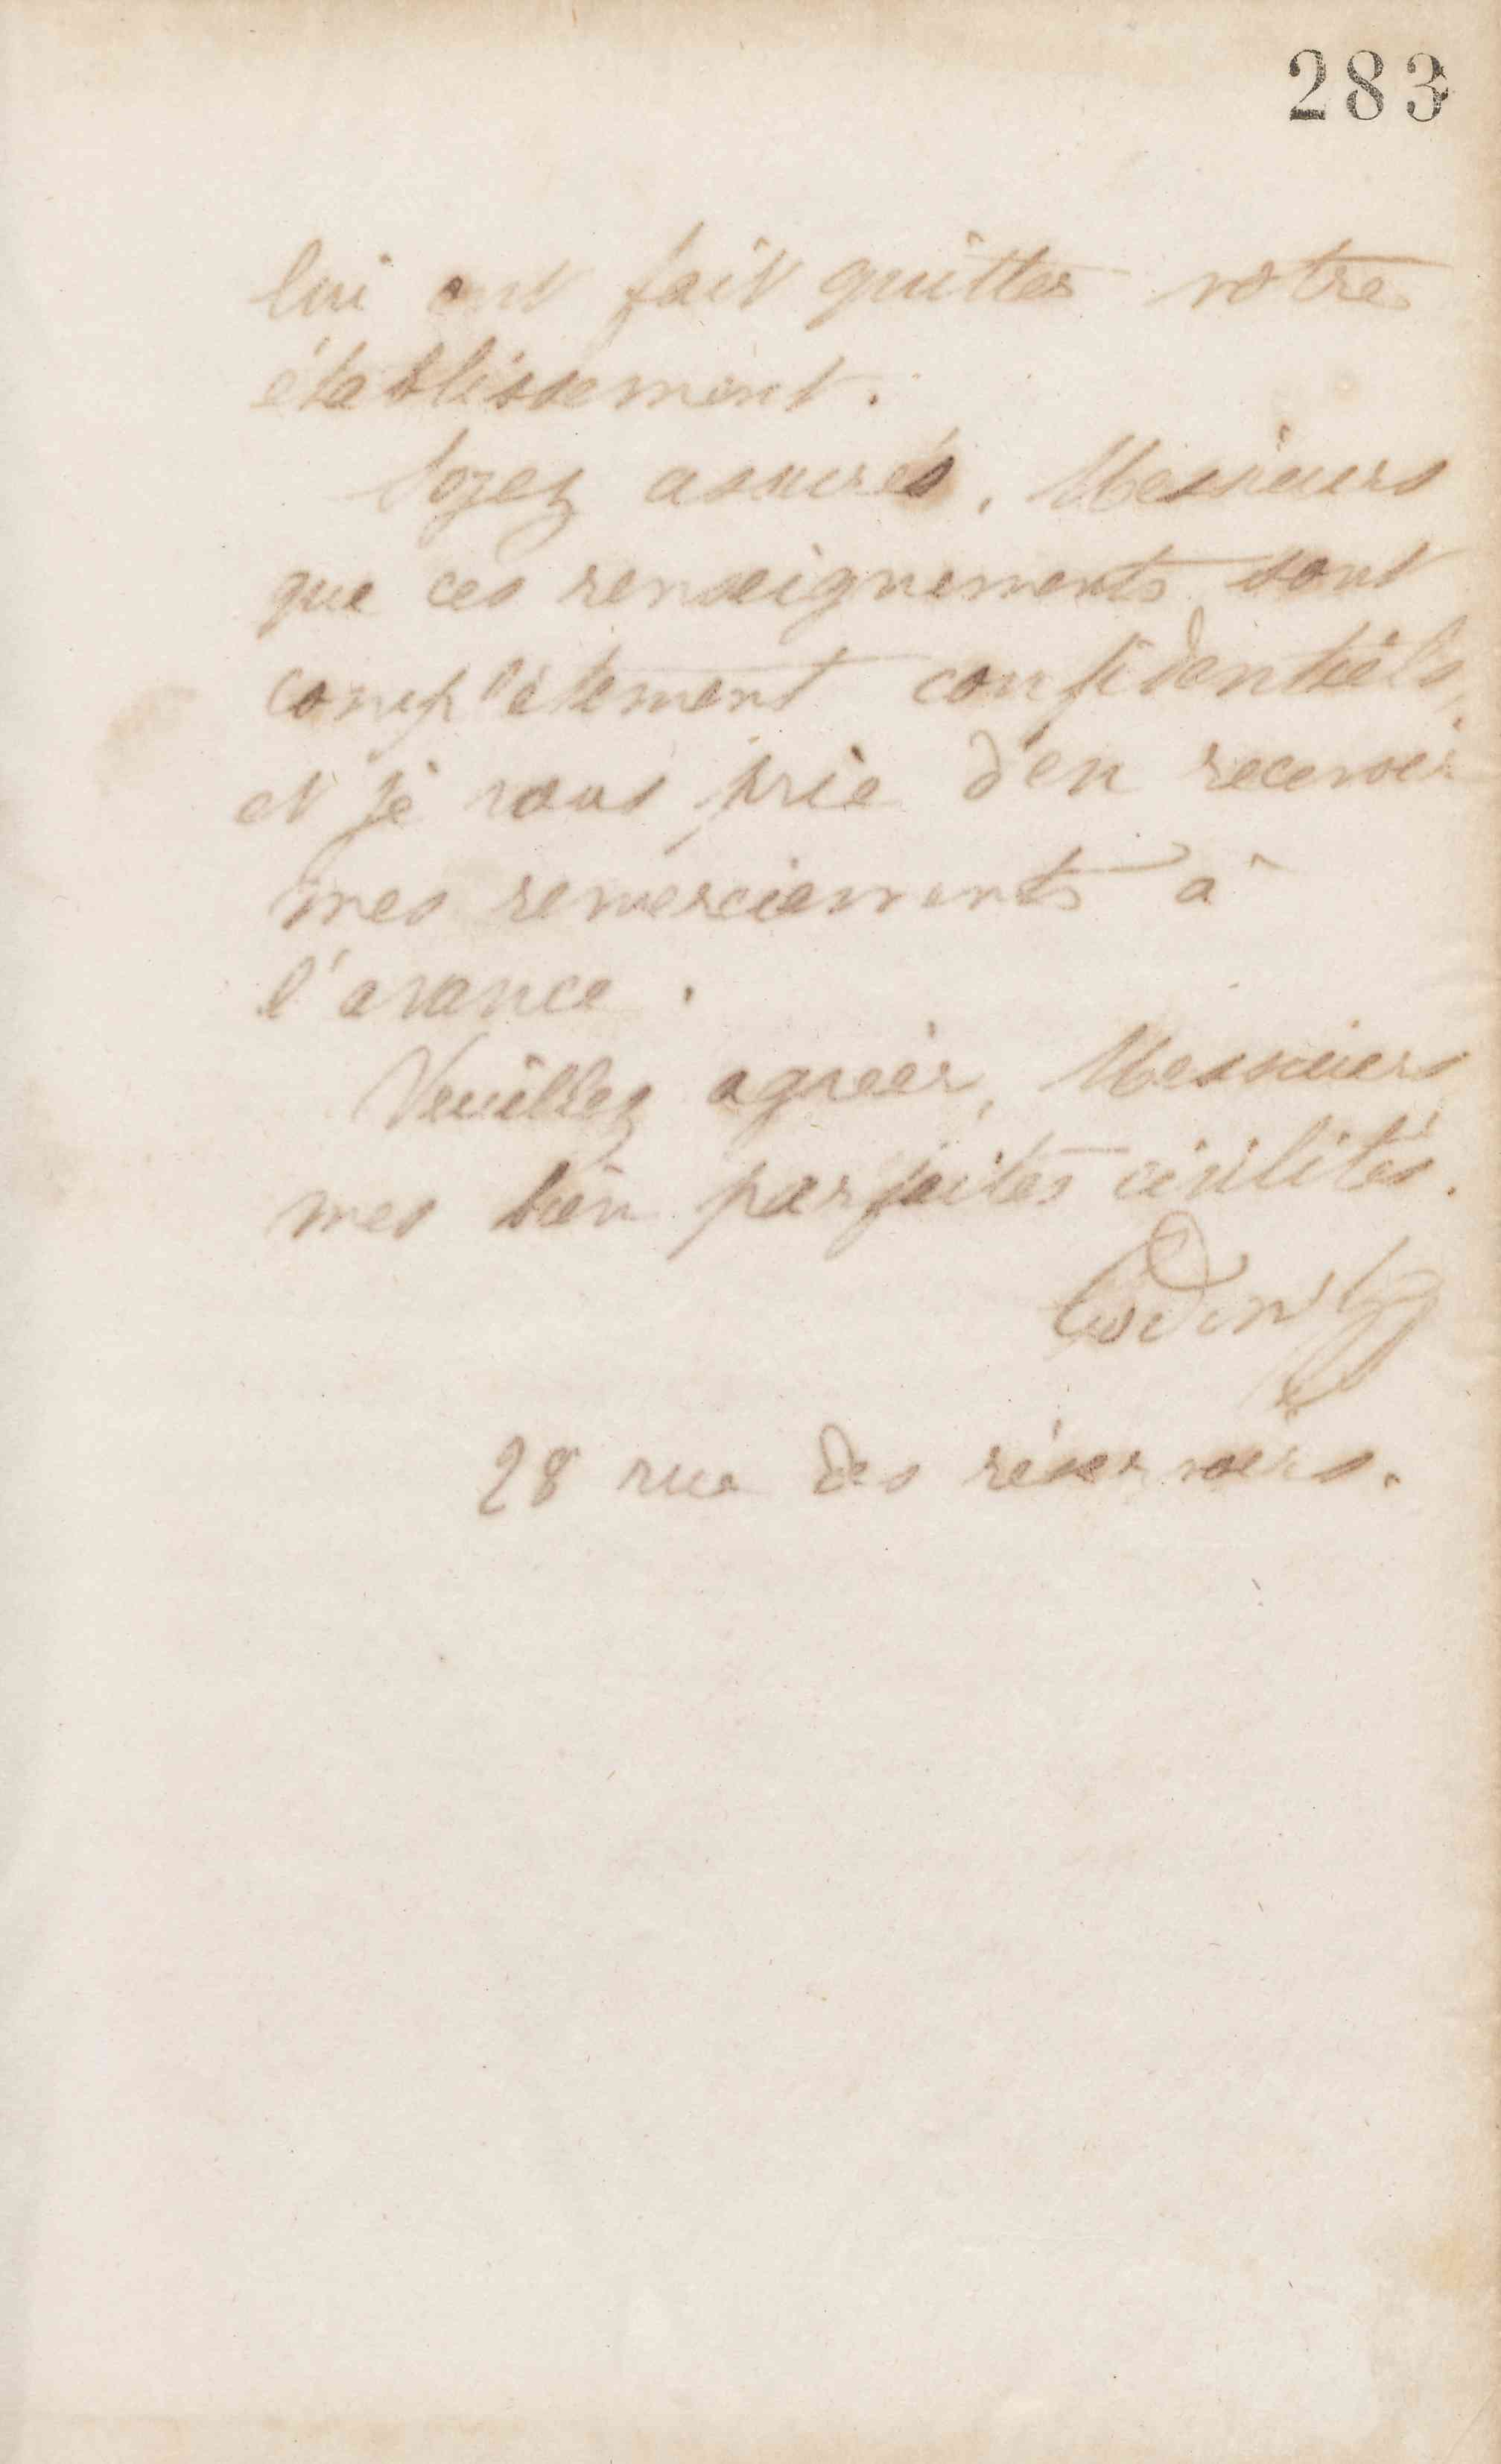 283
lui ont fait quitter votre
établissement.
Soyez assurés, Messieurs
que ces renseignements sont
complètement confidentiels,
et je vous prie d'en recevoir
mes remerciements à
l'avance.
Veuillez agréer, Messieurs
mes bien parfaites civilités.
Godin
28 rue des réservoirs.